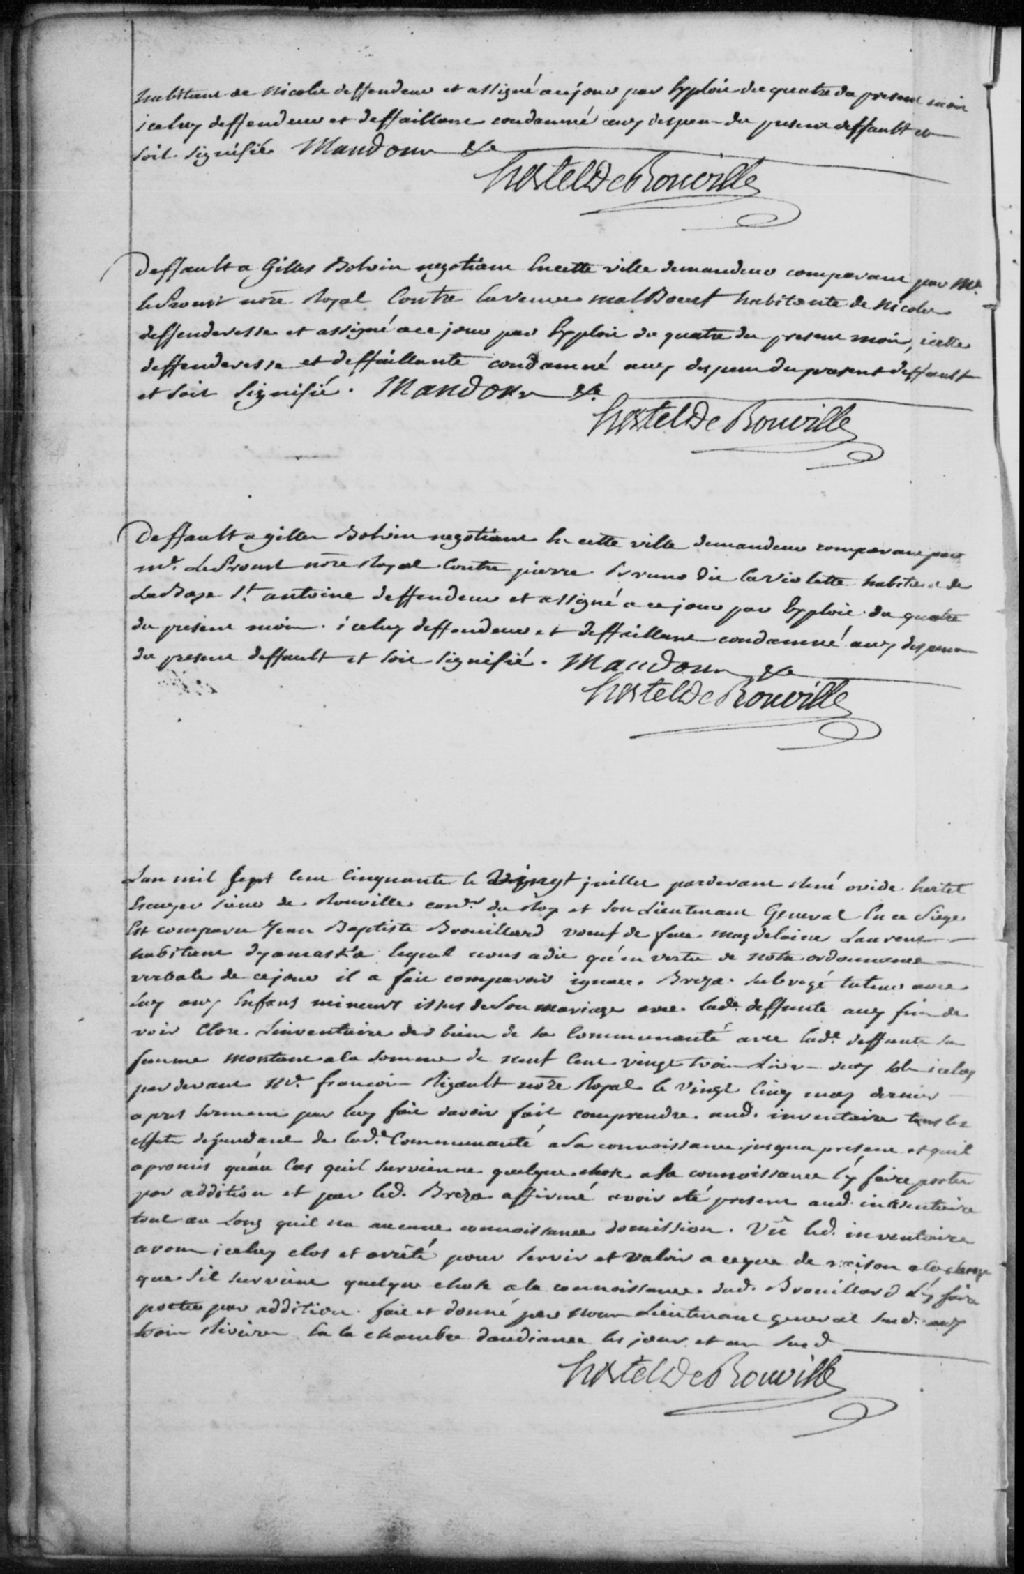 habitant de Nicolet deffendeur et assigné a ce jour par Exploit du quatre du present mois
iceluy deffendeur et deffaillant condamné aux depens du present deffault et
soit signifié Mandons &a
hertel De Rouville
Deffault a Gilles Bolvin negotiant En cette ville demandeur comparant par Me.
LeProust notre Royal Contre la veuve malBoeuf habitante de Nicolet
deffenderesse et assigné a ce jour par Exploit du quatre du present mois, icelle
deffenderesse et deffaillante condamné aux depens du present deffault
et soit signifié. Mandons &a
hertel De Rouville
Deffault a gilles Bolvin negotiant En cette ville demandeur comparant par
me. LeProust notre Royal Contre pierre Bruno dit la violette habitant de
La Baye St. antoine deffendeur et assigné a ce jour par Exploit du quatre
du present mois. iceluy deffendeur et deffaillant condamné aux depens
du present deffault et soit signifié. Mandons &a
hertel De Rouville
L'an mil sept Cent Cinquante le vingt juillet pardevant René ovide hertel
Ecuyer sieur de Rouville coner. du Roy et son Lieutenant General En ce Siege
Est comparu Jean Baptiste Brouillard voeuf de feue magdelaine Laurent
habitant dyamaska lequel nous a dit qu'en vertu de notre ordonnance
verbale de ce jour il a fait comparoir ignace Breza subrogé tuteur avec
luy aux Enfans mineurs issus de son mariage avec lade. deffunte aux fins de
voir Clore L'inventaire des biens de la Communauté avec lade. deffunte sa
femme montant a la somme de neuf Cent vingt trois Livres iceluy
par devant Me. françois Rigault notre Royal le vingt Cinq may dernier
apres serment par luy fait davoir fait comprendre aud. inventaire tous les
effets dependant de lade. Communauté a sa connoissance jusqua present et quil
a promis qu'au Cas quil survienne quelque chose a sa connoissance L'y faire porter
par addition et par led. Breza affirmé avoir eté present aud. inventaire
tout au Long quil na aucune connoissance domission. Vû led. inventaire
avons iceluy clos et arrêté pour servir et valoir a ce que de raison a la charge
que sil survient quelque chose a la connoissance dud. Brouillard L'y faire
porter par addition. fait et donné par nous Lieutenant general sud. aux
trois Rivieres En la chambre daudiance les jour et an sud.
hertel De Rouville